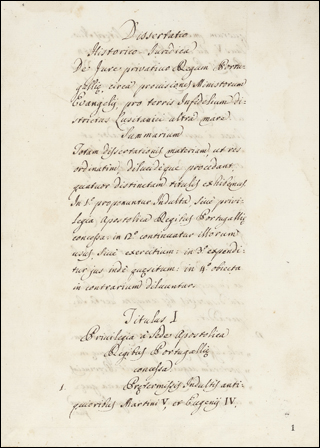 Dissertatio
Historico-Juridica
De Jure privativo Regum Portu-
galliæ circa provisiones Ministrorum
Evangelij, pro terris Infidelium di-
strictus Lusitanici ultra mare
Summarium
Totam dissertationis materiam, ut res
ordinatim, dilucideque procedant,
quatuor distinctam titulis exhibemus
In 1.º proponuntur Indulta, sive privi-
legia Apostolica Regibus Portugalliæ
concessa: in 2.º continuatur illorum
usus, sive exercitium: in 3.º expendi-
tur jus indè quæsitum: in 4.º objecta
in contrarium diluuntur.
Titulus I
Privilegia à Sede Apostolica
Regibus Portugalliæ
concessa
1 Prætermissis Indultis anti-
quioribus Martini V, et Eugenij IV,
1